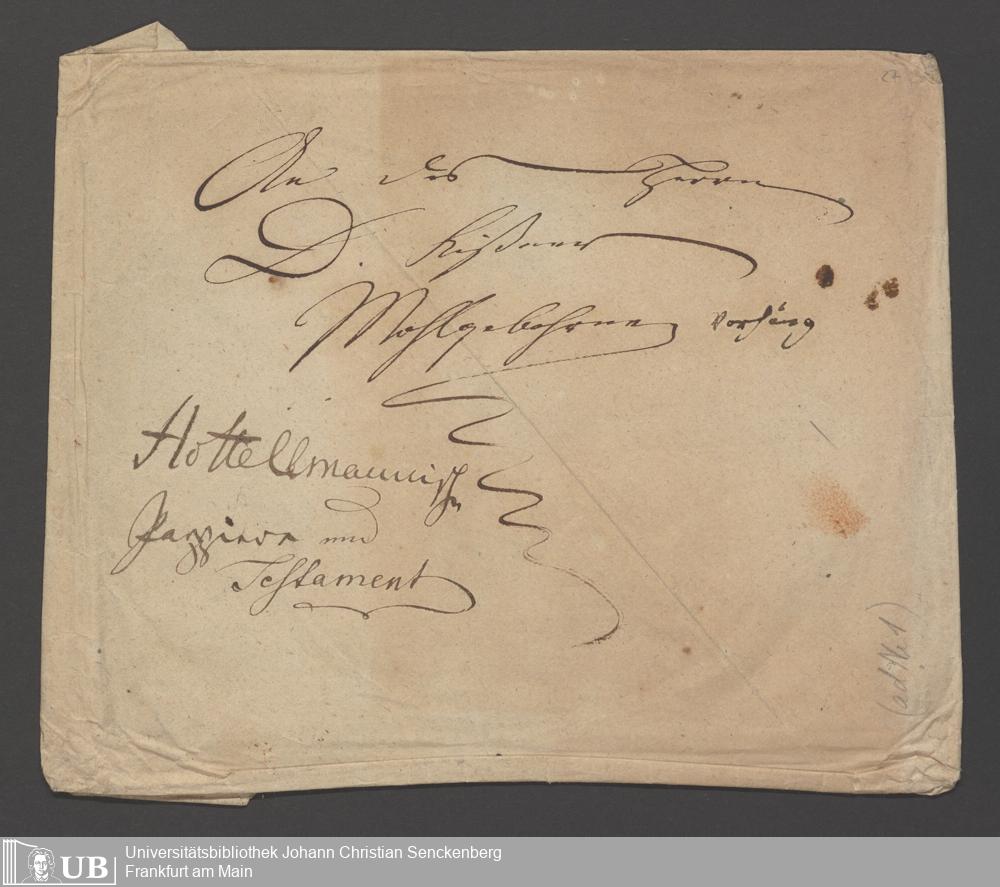 27
An des Herrn
D. Kißner
Wohlgebohrne
Hottellmannische
Pappiere und
Testament
(ad № 1)
UB
Universitätsbibliothek Johann Christian Senckenberg
Frankfurt am Main